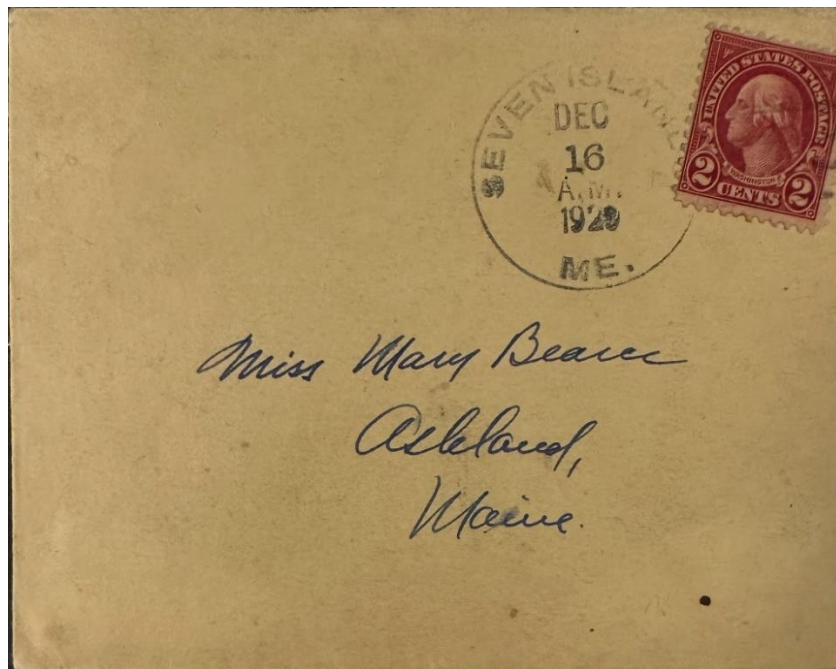 SEVEN ISLAND
DEC
16
A.M.
1929
ME.
UNITED STATES POSTAGE
WASHINGTON
2 CENTS 2
Miss Mary Bearce
Ashland,
Maine.